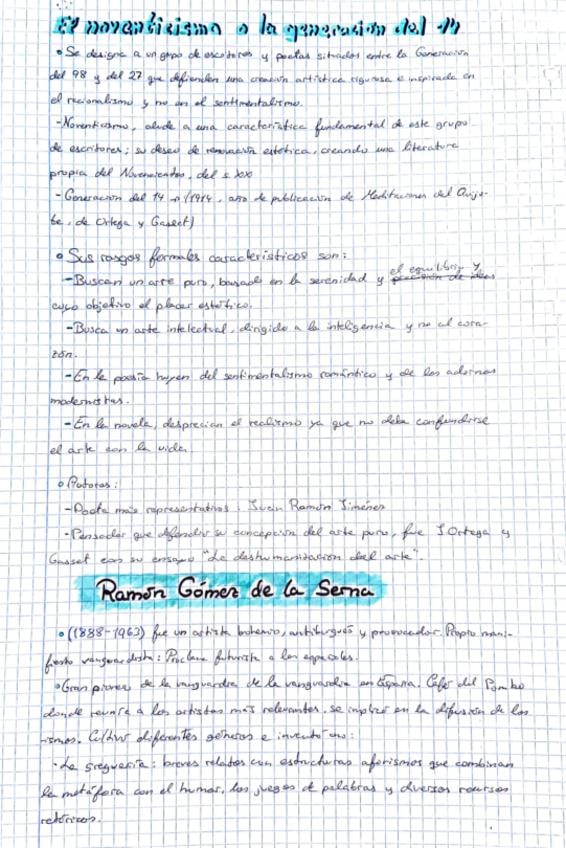 El noventicismo o la generación del 14
• Se designa a un grupo de escritores y poetas situados entre la Generación
del 98 y del 27 que defienden una creación artística rigurosa e inspirada en
el racionalismo y no en el sentimentalismo.
- Noventicismo, alude a una característica fundamental de este grupo
de escritores; su deseo de renovación estética, creando una literatura
propia del Novecientos, del s. XX
- Generación del 14 → (1914, año de publicación de Meditaciones del Quijo-
te, de Ortega y Gasset)
• Sus rasgos formales característicos son:
- Buscan un arte puro, basado en la serenidad y el equilibrio y
cuyo objetivo el placer estético.
- Busca un arte intelectual, dirigido a la inteligencia y no al cora-
zón.
- En la poesía huyen del sentimentalismo romántico y de los adornos
modernistas.
- En la novela, desprecian el realismo ya que no debe confundirse
el arte con la vida
• Autores:
- Poeta más representativo: Juan Ramón Jiménez
- Pensador que defendió su concepción del arte puro, fue J. Ortega y
Gasset con su ensayo "La deshumanización del arte".
Ramón Gómez de la Serna
• (1888-1963) fue un artista bohemio, antiburgués y provocador. Propio mani-
fiesto vanguardista: Proclama futurista a los españoles.
• Gran pionero de la vanguardia de la vanguardia en España. Café del Pombo
donde reunía a los artistas más relevantes, se implicó en la difusión de los
-ismos. Cultivó diferentes géneros e inventó uno:
· La greguería: breves relatos con estructuras aforismos que combinan
la metáfora con el humor, los juegos de palabras y diversos recursos
retóricos.